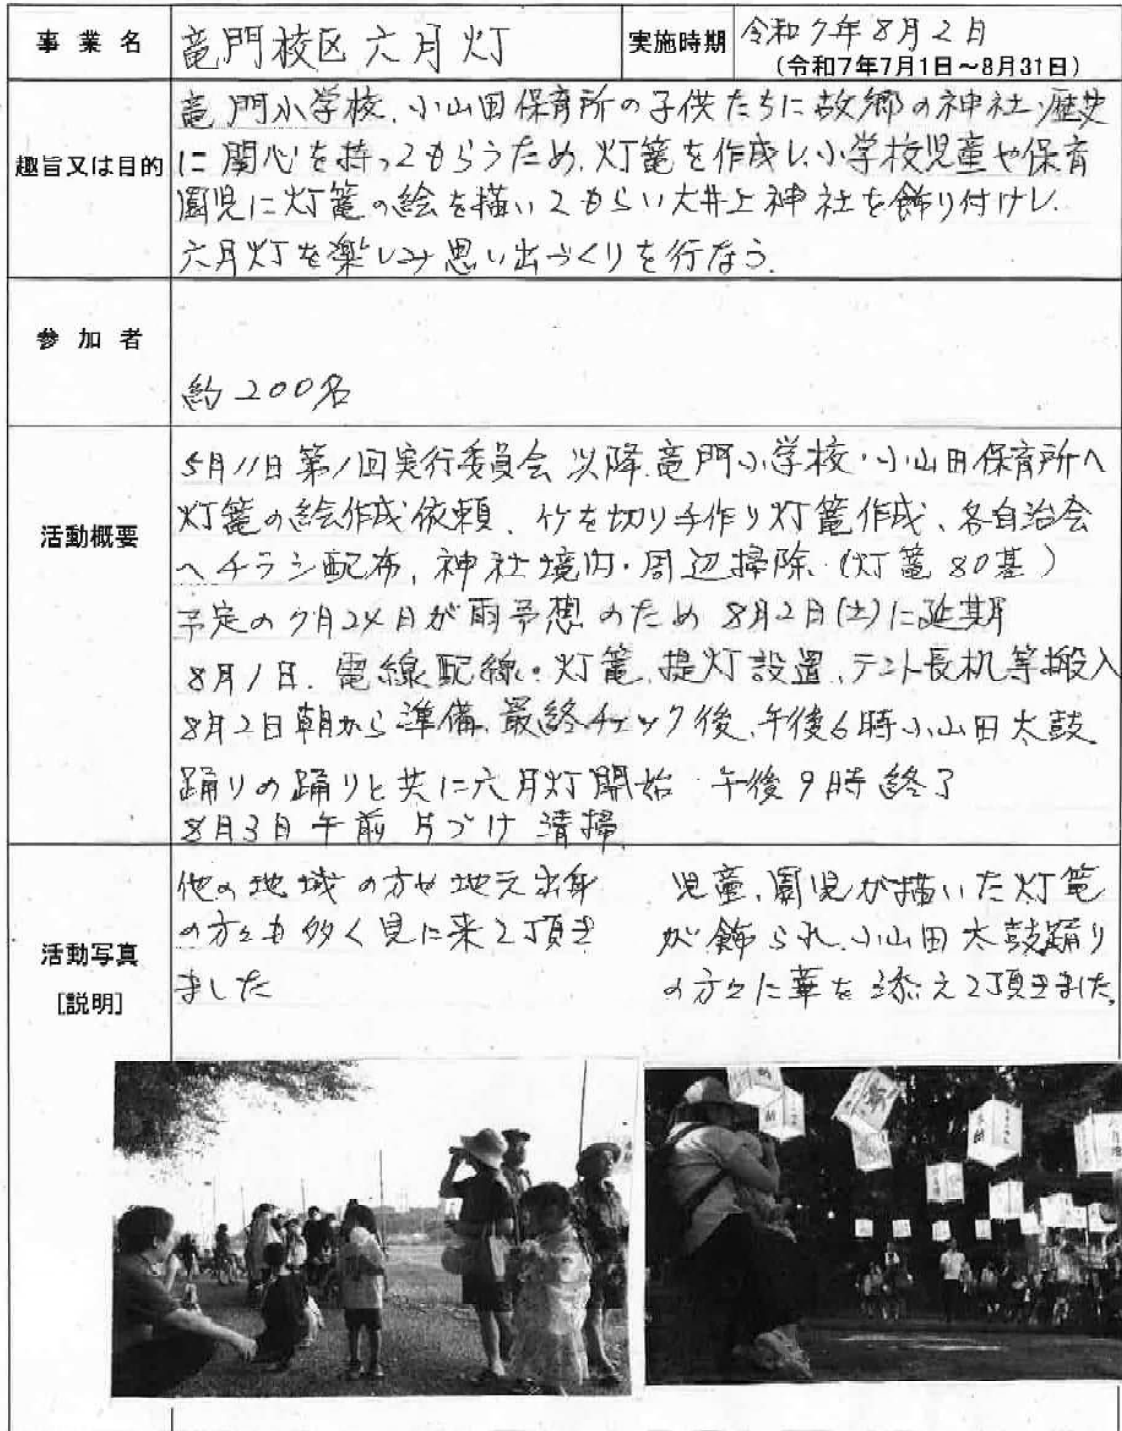 事業名 竜門校区六月灯 実施時期 令和7年8月2日
(令和7年7月1日～8月31日)
趣旨又は目的
竜門小学校、小山田保育所の子供たちに故郷の神社、歴史
に関心を持ってもらうため、灯篭を作成し、小学校児童や保育
園児に灯篭の絵を描いてもらい大井上神社を飾り付けし、
六月灯を楽しみ思い出づくりを行なう。
参加者
約200名
活動概要
5月11日第1回実行委員会 以降、竜門小学校・小山田保育所へ
灯篭の絵作成依頼、竹を切り手作り灯篭作成、各自治会
へチラシ配布、神社境内・周辺掃除(灯篭80基)
予定の7月24日が雨予想のため8月2日(土)に延期
8月1日、電線配線・灯篭、提灯設置、テント長机等搬入
8月2日朝から準備、最終チェック後、午後6時小山田太鼓
踊りの踊りと共に六月灯開始 午後9時終了
8月3日午前片づけ清掃
活動写真
[説明]
他の地域の方や地元出身
の方々も多く見に来て頂き
ました
児童、園児が描いた灯篭
が飾られ、小山田太鼓踊り
の方々に華を添えて頂きました。